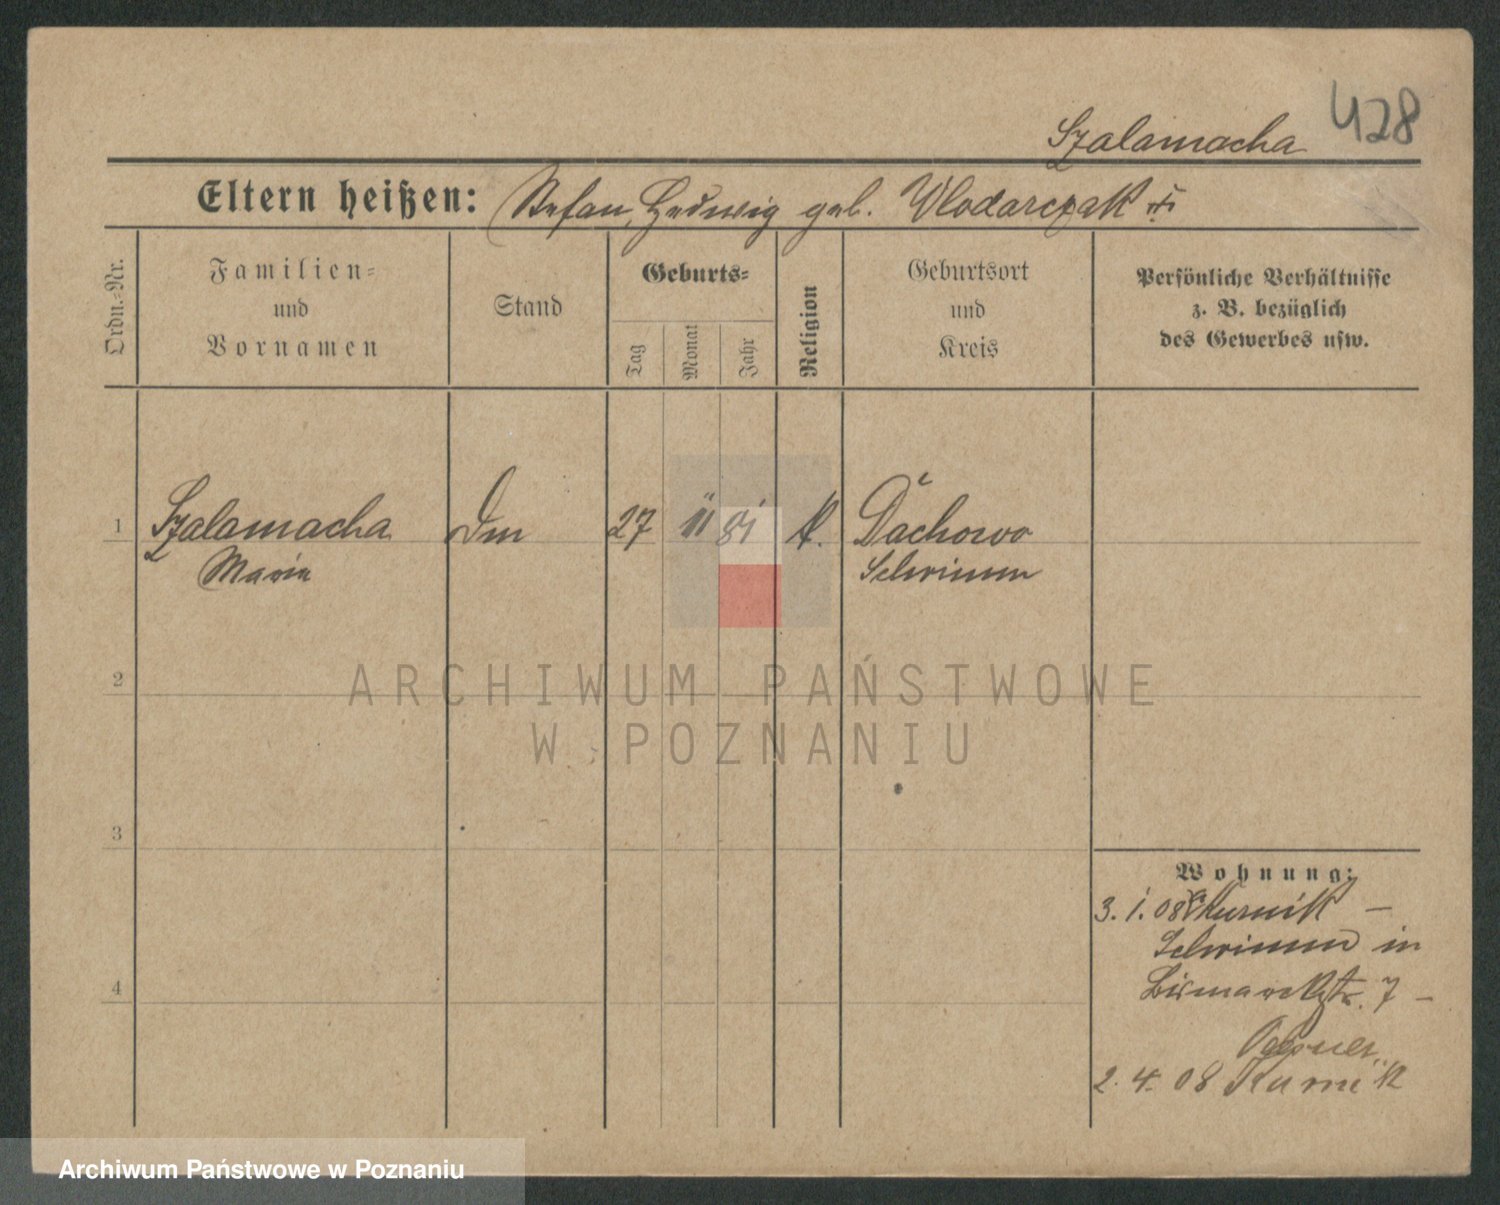 428
Szalamacha
Eltern heißen: Stefan, Hedwig geb. Wlodarczak
Ordn.-Nr.
Familien-
und
Vornamen
Stand
Geburts-
Tag
Monat
Jahr
Religion
Geburtsort
und
Kreis
Persönliche Verhältnisse
z. B. bezüglich
des Gewerbes usw.
1 Szalamacha Dm 27 11 81 k. Dachowo
Maria Schrimm
2
ARCHIWUM PAŃSTWOWE
W POZNANIU
3
Wohnung:
3. 1. 08 Kurnik –
Schrimm in
Bismarckstr. 7 –
4
2. 4. 08 Kurnik
Archiwum Państwowe w Poznaniu